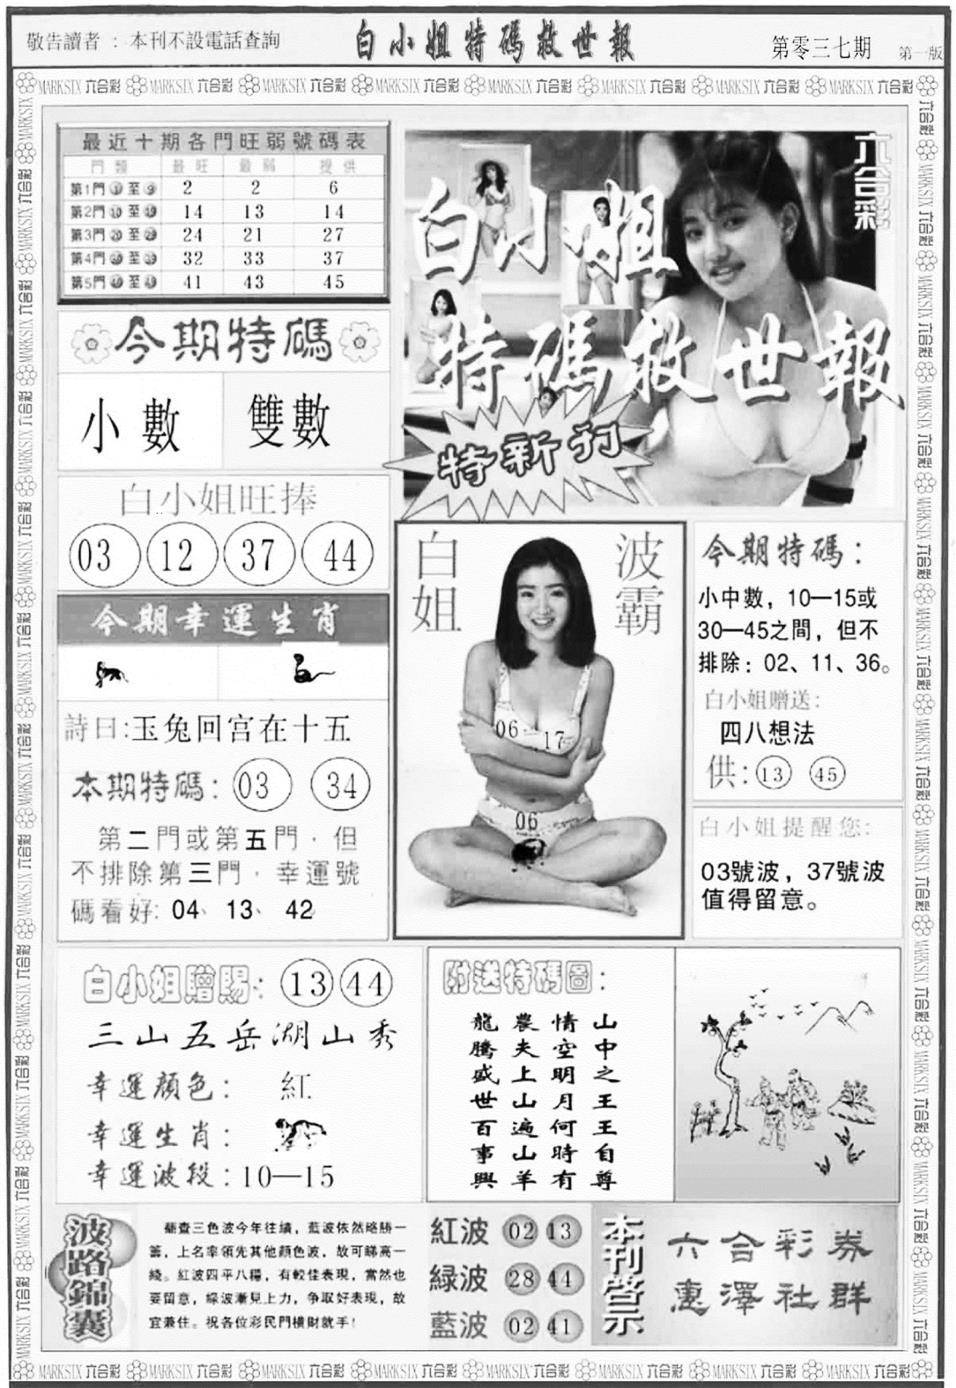 敬告讀者：本刊不設電話查詢
白小姐特碼救世報
第零三七期
第一版
MARKSIX 六合彩
最近十期各門旺弱號碼表
門類 最旺 最弱 提供
第1門 ①至⑨ 2 2 6
第2門 ⑩至⑲ 14 13 14
第3門 ⑳至㉙ 24 21 27
第4門 至 32 33 37
第5門 至 41 43 45
六合彩
白小姐
特碼救世報
特新刊
今期特碼
小數 雙數
白小姐旺捧
03 12 37 44
今期幸運生肖
詩曰:玉兔回宫在十五
本期特碼: 03 34
第二門或第五門，但
不排除第三門，幸運號
碼看好: 04、13、42
白姐
波霸
06 17
06
今期特碼：
小中數，10—15或
30—45之間，但不
排除：02、11、36。
白小姐贈送:
四八想法
供: 13 45
白小姐提醒您:
03號波，37號波
值得留意。
白小姐贈賜: 13 44
三山五岳湖山秀
幸運顏色： 紅
幸運生肖：
幸運波段:10—15
附送特碼圖:
山中之王王自尊
情空明月何時有
農夫上山遍山羊
龍騰盛世百事興
波路錦囊
查三色波今年往績，藍波依然略勝一
籌，上名率領先其他顏色波，故可睇高一
綫。紅波四平八穩，有較佳表現，當然也
要留意，綠波漸見上力，争取好表現，故
宜兼住。祝各位彩民門横財就手!
紅波 02 13
緑波 28 44
藍波 02 41
本刊啓示
六合彩券
惠澤社群